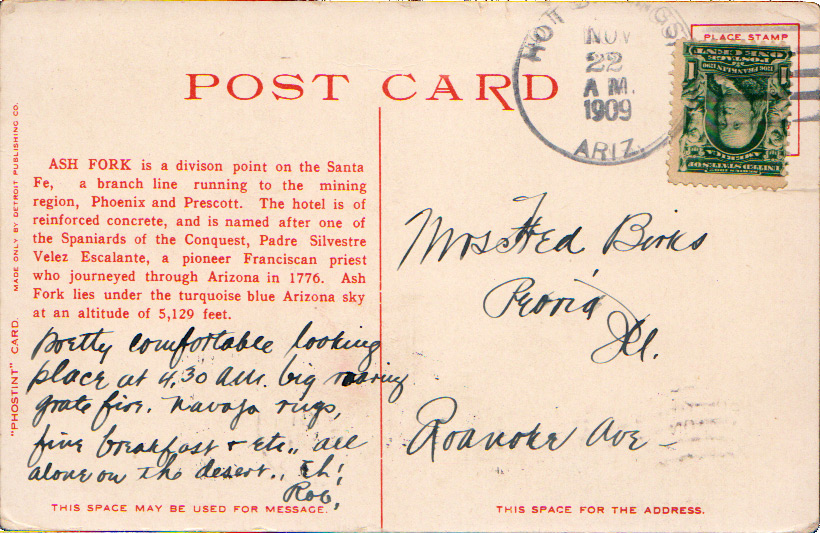 POST CARD
PLACE STAMP
HOT SPRINGS
NOV
22
A M.
1909
ARIZ.
ONE CENT
1
1
POSTAGE
AMERICA
UNITED STATES OF
MADE ONLY BY DETROIT PUBLISHING CO.
"PHOSTINT" CARD.
ASH FORK is a divison point on the Santa
Fe, a branch line running to the mining
region, Phoenix and Prescott. The hotel is of
reinforced concrete, and is named after one of
the Spaniards of the Conquest, Padre Silvestre
Velez Escalante, a pioneer Franciscan priest
who journeyed through Arizona in 1776. Ash
Fork lies under the turquoise blue Arizona sky
at an altitude of 5,129 feet.
pretty comfortable looking
place at 4,30 A.M. big roaring
grate fire. Navajo rugs,
fine breakfast & etc,, all
alone on the desert., Eh!
Rob,
THIS SPACE MAY BE USED FOR MESSAGE.
Mrs Fred Birks
Peoria
Ill.
Roanoke Ave -
THIS SPACE FOR THE ADDRESS.